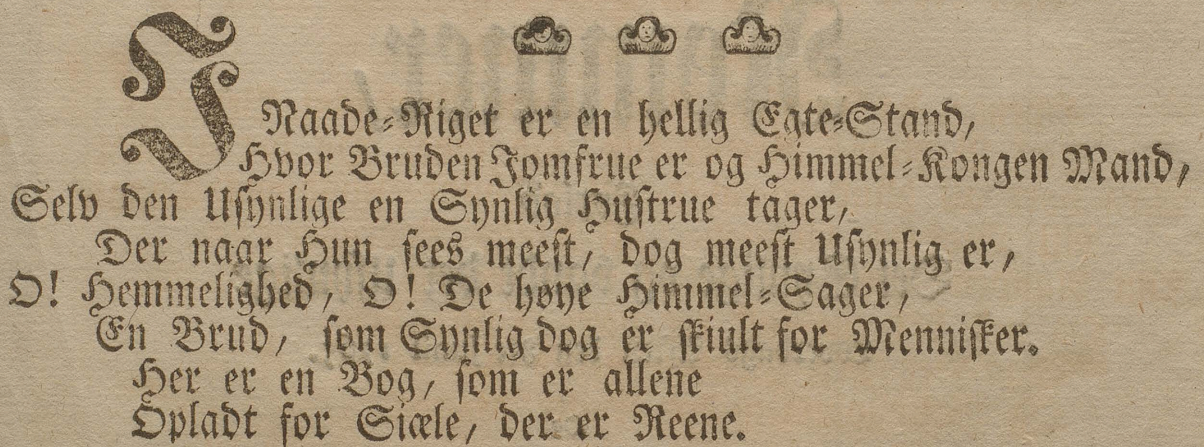 I Naade-Riget er en hellig Egte-Stand,
Hvor Bruden Jomfrue er og Himmel-Kongen Mand,
Selv den Usynlige en Synlig Hustrue tager,
Der naar Hun sees meest, dog meest Usynlig er,
O! Hemmelighed, O! De høye Himmel-Sager,
En Brud, som Synlig dog er skiult for Mennisker.
Her er en Bog, som er allene
Opladt for Siæle, der er Reene.